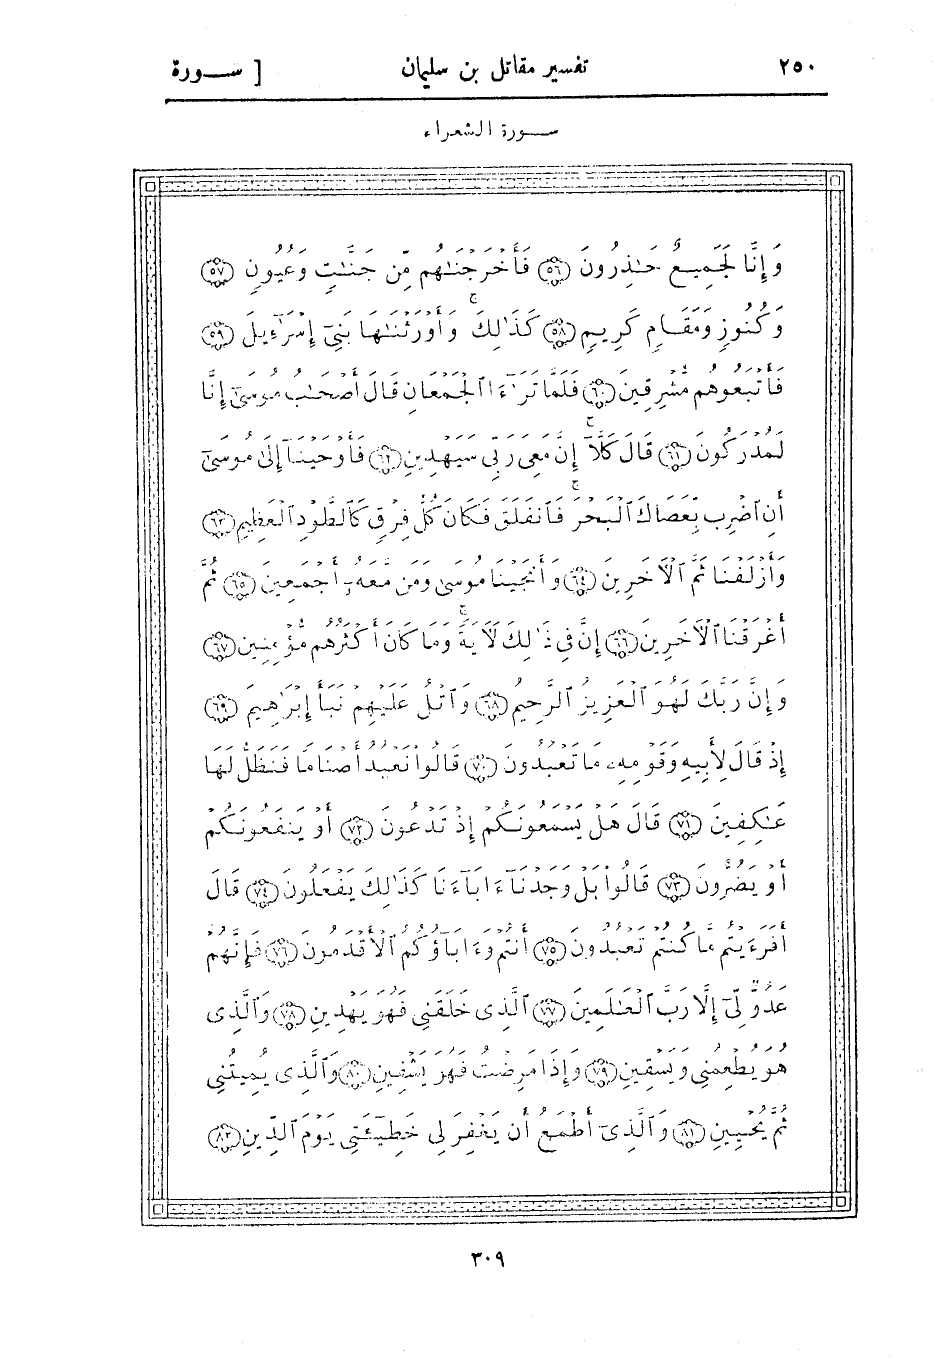 ٢٥٠ تفسير مقاتل بن سليمان [ ســورة
ســورة الشعراء
وَإِنَّا لَجَمِيعٌ حَٰذِرُونَ ٥٦ فَأَخْرَجْنَٰهُم مِّن جَنَّٰتٍ وَعُيُونٍ ٥٧
وَكُنُوزٍ وَمَقَامٍ كَرِيمٍ ٥٨ كَذَٰلِكَ ۚ وَأَوْرَثْنَٰهَا بَنِىٓ إِسْرَٰٓءِيلَ ٥٩
فَأَتْبَعُوهُم مُّشْرِقِينَ ٦٠ فَلَمَّا تَرَٰٓءَا ٱلْجَمْعَانِ قَالَ أَصْحَٰبُ مُوسَىٰٓ إِنَّا
لَمُدْرَكُونَ ٦١ قَالَ كَلَّآ ۚ إِنَّ مَعِىَ رَبِّى سَيَهْدِينِ ٦٢ فَأَوْحَيْنَآ إِلَىٰ مُوسَىٰٓ
أَنِ ٱضْرِب بِّعَصَاكَ ٱلْبَحْرَ ۚ فَٱنفَلَقَ فَكَانَ كُلُّ فِرْقٍ كَٱلطَّوْدِ ٱلْعَظِيمِ ٦٣
وَأَزْلَفْنَا ثَمَّ ٱلْأَخَرِينَ ٦٤ وَأَنجَيْنَا مُوسَىٰ وَمَن مَّعَهُۥٓ أَجْمَعِينَ ٦٥ ثُمَّ
أَغْرَقْنَا ٱلْأَخَرِينَ ٦٦ إِنَّ فِى ذَٰلِكَ لَأَيَةً ۚ وَمَا كَانَ أَكْثَرُهُم مُّؤْمِنِينَ ٦٧
وَإِنَّ رَبَّكَ لَهُوَ ٱلْعَزِيزُ ٱلرَّحِيمُ ٦٨ وَٱتْلُ عَلَيْهِمْ نَبَأَ إِبْرَٰهِيمَ ٦٩
إِذْ قَالَ لِأَبِيهِ وَقَوْمِهِۦ مَا تَعْبُدُونَ ٧٠ قَالُوا۟ نَعْبُدُ أَصْنَامًا فَنَظَلُّ لَهَا
عَٰكِفِينَ ٧١ قَالَ هَلْ يَسْمَعُونَكُمْ إِذْ تَدْعُونَ ٧٢ أَوْ يَنفَعُونَكُمْ
أَوْ يَضُرُّونَ ٧٣ قَالُوا۟ بَلْ وَجَدْنَآ ءَابَآءَنَا كَذَٰلِكَ يَفْعَلُونَ ٧٤ قَالَ
أَفَرَءَيْتُم مَّا كُنتُمْ تَعْبُدُونَ ٧٥ أَنتُمْ وَءَابَآؤُكُمُ ٱلْأَقْدَمُونَ ٧٦ فَإِنَّهُمْ
عَدُوٌّ لِّىٓ إِلَّا رَبَّ ٱلْعَٰلَمِينَ ٧٧ ٱلَّذِى خَلَقَنِى فَهُوَ يَهْدِينِ ٧٨ وَٱلَّذِى
هُوَ يُطْعِمُنِى وَيَسْقِينِ ٧٩ وَإِذَا مَرِضْتُ فَهُوَ يَشْفِينِ ٨٠ وَٱلَّذِى يُمِيتُنِى
ثُمَّ يُحْيِينِ ٨١ وَٱلَّذِىٓ أَطْمَعُ أَن يَغْفِرَ لِى خَطِيٓـَٔتِى يَوْمَ ٱلدِّينِ ٨٢
٣٠٩